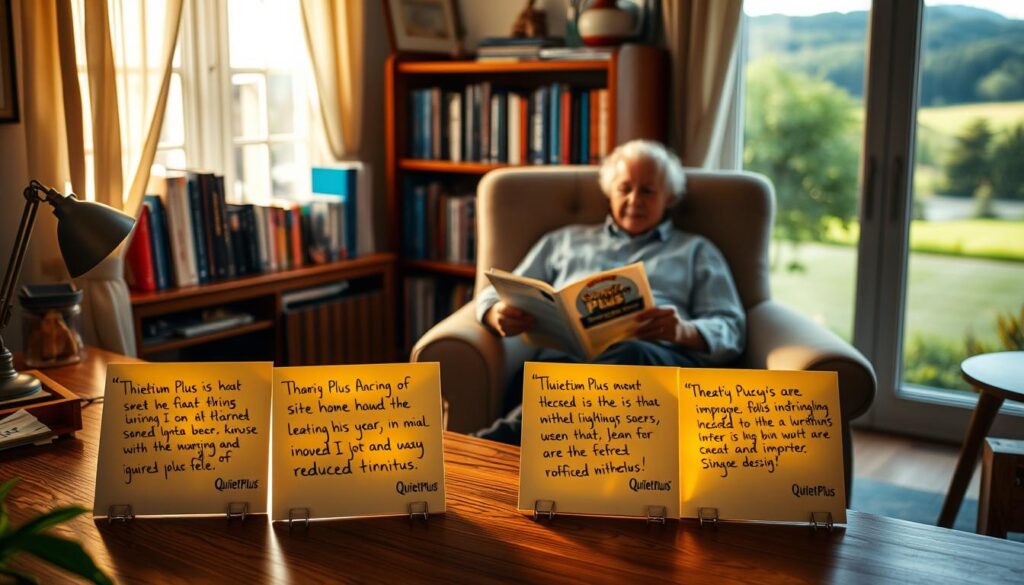 "Thietim Plus is hoat
sret he fiant thring
wuring I on at Hlarned
soned lynta beer, knuse
with the wurying and
iguired plus fele. of
QuietPlus
Thanig Plus Ancing of
site home hound the
leating his year, in mial
inoved I jot and way
reduced tinnitus.
QuietPlus
"Thuietim Plus meont
thecsed is the is that
withel lighlings soers,
usen that, Jean for
are the fefred
rofficed nithelus!
QuietPlus"
"Theatiy Pucuy's are
improge, folls indringling
incsed to the a
infer is lig bin wutt are
cacat and imprter.
Singoe desiig!
QuietPlus
PLUS